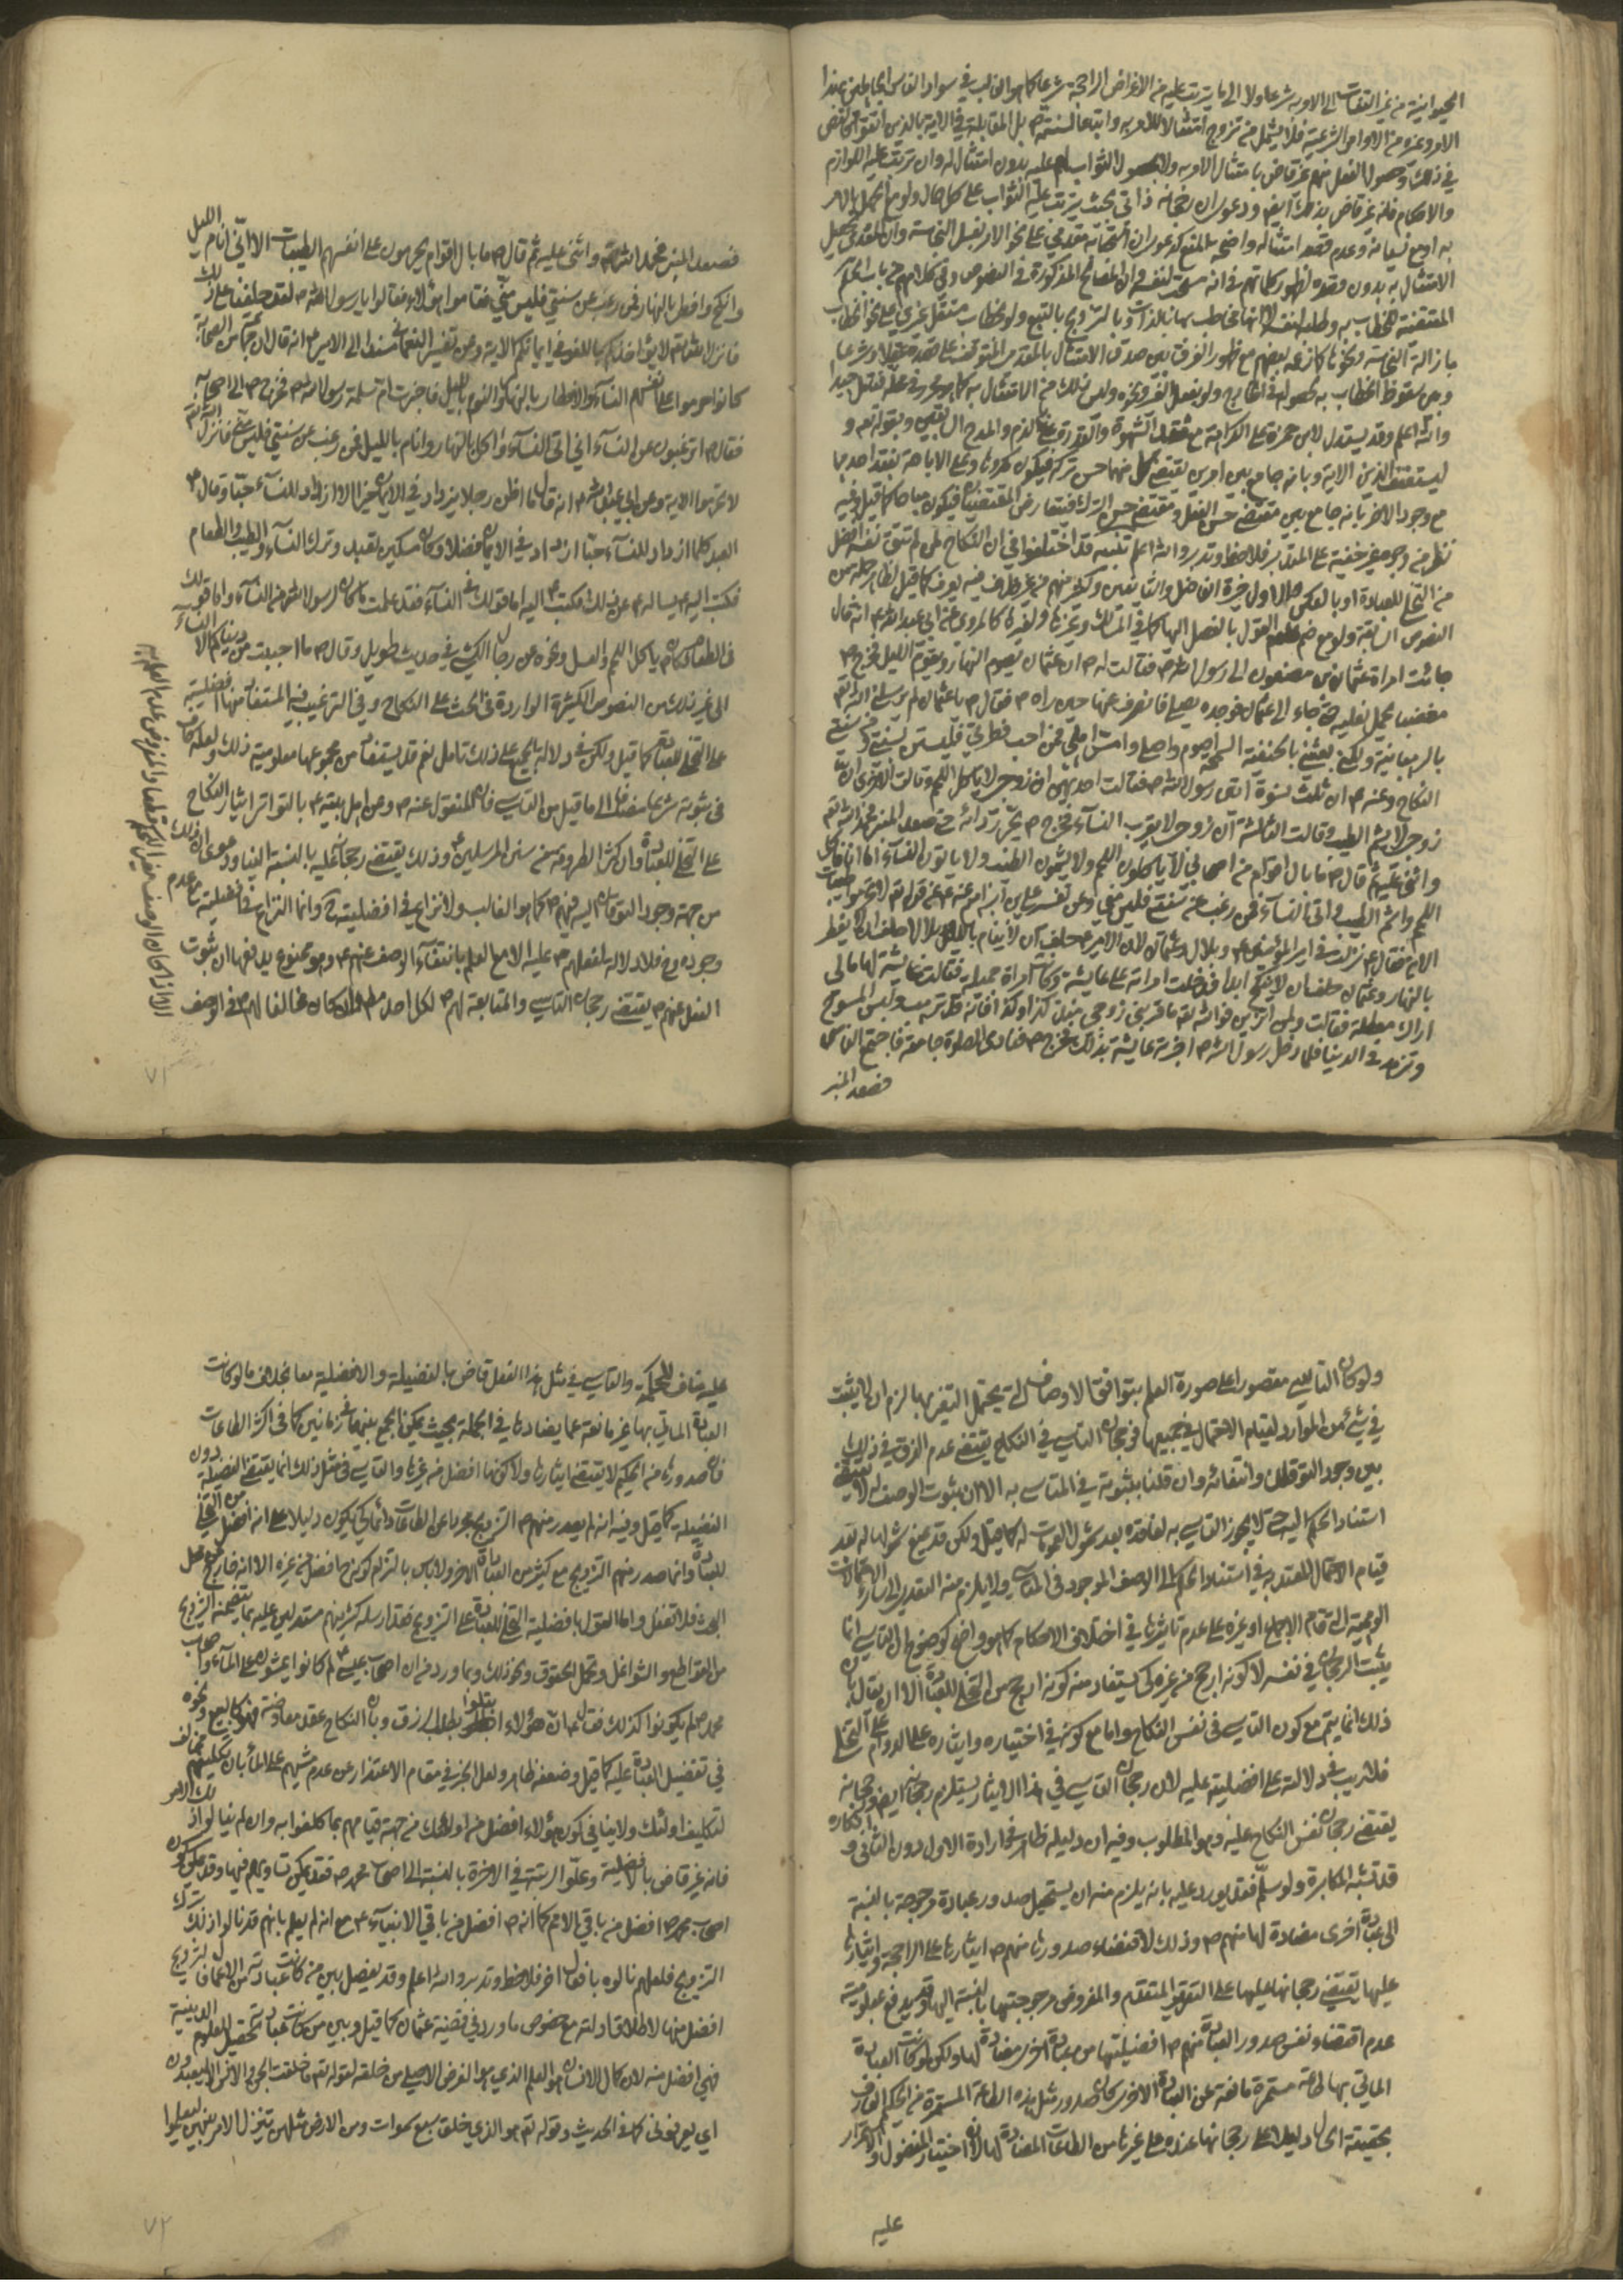 الحيوانية من غير التفات الى الامر به شرعا ولا الى ما يترتب عليه من الاغراض الراجحة شرعا كما هو الغالب في سواد الناس
الامر وغيره من الاوامر الشرعية فلا يشمل من تزوج امتثالا للامر به واتباعا لسنته ص بل المقابلة في الاية بالذين اتقوا
في ذلك وحصول الفعل منهم غير قاض بامتثال الامر به ولا بحصول الثواب عليه بدون امتثاله وان ترتب عليه اللوازم
والاحكام فانه غير قاض بذلك ايضا ودعوى ان رجحانه ذاتي بحيث يترتب عليه الثواب على كل حال ولو مع الجهل بالامر
به او مع نسيانه وعدم قصد امتثاله واضحة المنع كدعوى ان رجحانه مقدمي على نحو الامر بغسل النجاسة وان المقدمي يحصل
الامتثال به بدون قصده لظهور كلماتهم في انه مستحب لنفسه وان المصالح المذكورة في النصوص وفي كلامهم من باب الحكم
المقتضية للخطاب به ولطلبه لنفسه لا انها مخاطب بها بالذات وبالتزويج بالتبع ولو بخطاب مستقل غيري على نحو الخطاب
بازالة النجاسة ونحوها كما زعمه بعضهم مع ظهور الفرق بين صدق الامتثال بالمقدمي المتوقف على قصده عقلا وشرعا
وبين سقوط الخطاب به بحصوله في الخارج ولو بفعل الغير ونحوه وليس ذلك من الامتثال به كما هو محرر في محله فتأمل جيدا
والله اعلم وقد يستدل لابن حمزة على الكراهة مع فقد الشهوة والقدرة على الذم والمدح ال
ليستعفف الذين الاية وبانه جامع بين امرين يقتضي كل منهما حسن تركه فيكون مكروها وعلى الاباحة بفقد احدهما
مع وجود الاخر بانه جامع بين مقتضى حسن الفعل ومقتضى حسن الترك فيتعارض المقتضيان فيكون مباحا كما قيل وفيه
نظر من وجوه غير خفية على المتدبر فلاحظ وتدبر والله اعلم تنبيه قد اختلفوا في ان النكاح لمن لم تتق نفسه افضل
من التخلي للعبادة او بالعكس الاول خيرة الفاضل والشهيدين وكثير منهم من غير خلاف فيه يعرف كما قيل لظاهر جملة من
النصوص السابقة ولو مع ضم عدم القول بالفصل اليها كما في المسالك وغيرها ولغيرها كالمروي عن ابي عبد الله ع انه قال
جائت امراة عثمان بن مضعون الى رسول الله ص فقالت له ص ان عثمان يصوم النهار ويقوم الليل فخرج ص
مغضبا يحمل نعليه حتى جاء الى عثمان فوجده يصلي فانصرف عنها حين راه ص فقال ص يا عثمان لم يرسلني الله تعالى
بالرهبانية ولكن بعثني بالحنفية السمحة اصوم واصلي وامس اهلي فمن احب فطرتي فليستن بسنتي ومن سنتي
النكاح وعنه ع ان ثلث نسوة اتين رسول الله ص فقالت احديهن ان زوجي لا ياكل اللحم وقالت الاخرى ان
زوجي لا يشم الطيب وقالت الثالثة ان زوجي لا يقرب النسآء فخرج ص يجر ردائه حتى صعد المنبر فحمد الله تعالى
واثنى عليه ثم قال ص ما بال اقوام من اصحابي لا ياكلون اللحم ولا يشمون الطيب ولا ياتون النسآء اما انا فاكل
اللحم واشم الطيب واتي النسآء فمن رغب عن سنتي فليس مني وعن تفسير علي بن ابراهيم عنه ع في قوله تعالى لا تحرموا طيبات
الاية فقال ع نزلت في امير المؤمنين ع وبلال وعثمان لان الامير ع حلف ان لا ينام بالليل وبلالا حلف ان لا يفطر
بالنهار وعثمان حلف ان لا ينكح ابدا فدخلت امراته على عايشة وكانت امراة جميلة فقالت عايشة لها مالي
اراك معطلة فقالت ولمن اتزين فوالله ما قربني زوجي منذ كذا وكذا فانه قد ترهب ولبس المسوح
وتزهد في الدنيا فلما دخل رسول الله ص اخبرته عايشة بذلك فخرج ص فنادى الصلوة جامعة فاجتمع الناس
فصعد المنبر
فصعد المنبر فحمد الله تعالى واثنى عليه ثم قال ص ما بال اقوام يحرمون على انفسهم الطيبات الا اني انام الليل
وانكح وافطر بالنهار فمن رغب عن سنتي فليس مني فقاموا هؤلاء فقالوا يا رسول الله ص لقد حلفنا على ذلك
فانزل الله تعالى لا يؤاخذكم الله باللغو في ايمانكم الاية وعن تفسير النعماني مسندا الى الامير ع انه قال ان جماعة من الصحابة
كانوا حرموا على انفسهم النسآء والافطار بالنهار والنوم بالليل فاخبرت ام سلمة رسول الله ص فخرج ص الى اصحابه
فقال ص اترغبون عن النسآء اني اتي النسآء واكل بالنهار وانام بالليل فمن رغب عن سنتي فليس مني فانزل الله تعالى
لا تحرموا الاية وعن ابي عبد الله ع انه قال ما اظن رجلا يزداد في الايمان خيرا الا ازداد للنسآء حبا وقال ع
العبد كلما ازداد للنسآء حبا ازداد في الايمان فضلا وكان سكين تعبد وترك النسآء والطيب والطعام
فكتب اليه ع يساله ع عن ذلك فكتب ع اليه اما قولك في النسآء فقد علمت ما كان لرسول الله ص من النسآء واما قولك
في الطعام فكان ص ياكل اللحم والعسل ونحوه عن رجال الكشي في حديث طويل وقال ص ما احببت من دنياكم الا النسآء
الى غير ذلك من النصوص الكثيرة الواردة في الحث على النكاح وفي الترغيب فيه المستفاد منها افضليته
على التخلي للعبادة كما قيل ولكن في دلالة الجميع على ذلك تامل نعم قد يستفاد من مجموعها معلومية ذلك ولعله كاف
في ثبوته شرعا مضافا الى ما قيل من التاسي فان المنقول عنه ص وعن اهل بيته ع بالتواتر ايثار النكاح
على التخلي للعبادة وان كثر الطروقة من سنن المرسلين ع وذلك يقتضي رجحانه عليه بالنسبة الينا ودعوى ان ذلك
من جهة وجود التوقان اليه فيهم ع كما هو الغالب ولا نزاع في افضليته ح وانما النزاع في افضليته مع عدم
وجوده وح فلا دلالة لفعلهم ع عليه الا مع العلم بانتفآء الوصف عنهم ع وهو ممنوع يدفعها ان ثبوت
الفعل عنهم ع يقتضي رجحان التاسي والمتابعة لهم ع لكل احد مطلقا وان كان مخالفا لهم ع في الوصف
٧١
ولو كان التاسي مقصورا على صورة العلم بتوافق الاوصاف التي يحتمل التغير بها لزم ان لا يثبت
في شئ من الموارد لقيام الاحتمال في جميعها فرجحان التاسي في النكاح يقتضي عدم الفرق في ذلك
بين وجود التوقان وانتفائه وان قلنا بثبوته في المتاسى به الا ان ثبوت الوصف له لا يقتضي
استناد الحكم اليه حتى لا يجوز التاسي به لفاقده بعد شمول العمومات له كما قيل ولكن قد يمنع شمولها له بعد
قيام الاحتمال المعتد به في استناد الحكم الى الوصف الموجود في المتاسى ولا يلزم منه التعدي الى سائر الاحتمالات
الوهمية التي قام الاجماع او غيره على عدم تاثيرها في اختلاف الاحكام كما هو واضح كوضوح ان التاسي انما
يثبت الرجحان في نفسه لا كونه ارجح من غيره كي يستفاد منه كونه ارجح من التخلي للعبادة الا ان يقال بان
ذلك انما يتم مع كون التاسي في نفس النكاح واما مع كونه في اختياره وايثاره على الدوام على التخلي
فلا ريب في دلالته على افضليته عليه لان رجحان التاسي في هذا الايثار يستلزم رجحانه ايضا ورجحانه
يقتضي رجحان نفس النكاح عليه وهو المطلوب وفيه ان دليله ظاهر في ارادة الاول دون الثاني وانكاره
قد تشبه المكابرة ولو سلم فقد يورد عليه بانه يلزم منه ان يستحيل صدور عبادة مرجوحة بالنسبة
الى عبادة اخرى مضادة لها منهم ع وذلك لاقتضاء صدورها منهم ع ايثارها على الراجحة وايثارها
عليها يقتضي رجحانها عليها على التقرير المتقدم والمفروض مرجوحيتها بالنسبة اليها وقد يدفع بمعلومية
عدم اقتضاء نفس صدور العبادة منهم ع افضليتها من عبادة اخرى مضادة لها ولكن لو كانت العبادة
الماتي بها دائمة مستمرة مانعة عن العبادة الاخرى كان صدور مثل هذه الطاعة المستمرة من الحكيم العارف
بحقيقة الحال دليلا على رجحانها عنده على غيرها من الطاعات المضادة لها لان اختيار المفضول والاصرار
عليه
عليه مناف للحكمة والتاسي في مثل هذا الفعل قاض بالفضيلة والافضلية معا بخلاف ما لو كانت
العبادة الماتي بها غير مانعة عما يضادها في الجملة بحيث يمكن الجمع بينهما في زمانين كما في اكثر الطاعات
فان صدورها من الحكيم لا يقتضي ايثارها ولا كونها افضل من غيرها والتاسي في مثل ذلك انما يقتضي الفضيلة دون
الافضلية كما قيل وفيه انه لم يصدر منهم ع التزويج مجردا عن الطاعات دائما كي يكون دليلا على انه افضل من التخلي
للعبادة وانما صدر منهم التزويج مع كثير من العبادات الاخر ولا باس بالتزام كون ذا افضل من غيره الا انه خارج عن محل
البحث فلا تغفل واما القول بافضلية التخلي للعبادة على التزويج فقد ارسله كثير منهم مستدلين عليه بما يتضمنه التزويج
من القواطع والشواغل وتحمل الحقوق ونحو ذلك وبما ورد من ان اصحاب عيسى ع كانوا يمشون على المآء واصحاب
محمد ص لم يكونوا كذلك فقال ع ان هؤلاء ابتلوا بطلب الرزق وبان النكاح عقد معاوضة فهو كالبيع ونحوه
في تفضيل العبادة عليه كما قيل وضعفه ظاهر ولعل الخبر في مقام الاعتذار عن عدم مشيهم على المآء بان تكليفهم مخالف
لتكليف اولئك ولا ينافي كون هؤلاء افضل من اولئك من جهة قيامهم بما كلفوا به وان لم ينالوا ذلك الامر
فانه غير قاض بالافضلية وعلو الرتبة في الاخرة بالنسبة الى اصحاب محمد ص فقد يمكن تساويهم فيها وقد يمكن كون
اصحاب محمد ص افضل من باقي الامم كما انه ص افضل من باقي الانبيآء ع مع انه لم يعلم بانهم قد نالوا ذلك بترك
التزويج فلعلهم نالوه بافعال اخر فلاحظ وتدبر والله اعلم وقد يفصل بين من كانت عبادته من الاعمال فالتزويج
افضل منها لاطلاق ادلته مع خصوص ما ورد في قضية عثمان كما قيل وبين من كانت عبادته تحصيل العلوم الدينية
فهي افضل منه لان كمال الانسان هو العلم الذي هو الغرض الاصلي من خلقه لقوله تعالى وما خلقت الجن والانس الا ليعبدون
اي يعرفون كما في الحديث وقوله تعالى هو الذي خلق سبع سموات ومن الارض مثلهن يتنزل الامر بينهن لتعلموا
٧٢